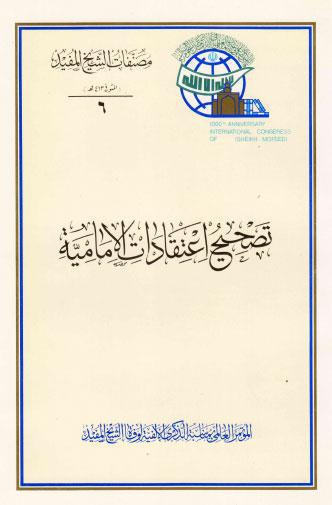 مصنفات الشيخ المفيد
(المتوفى ٤١٣ هـ)
٦
1000th ANNIVERSARY
INTERNATIONAL CONGRESS
OF (SHEIKH MOFEED)
تصحيح اعتقادات الإمامية
المؤتمر العالمي بمناسبة الذكرى الألفية لوفاة الشيخ المفيد